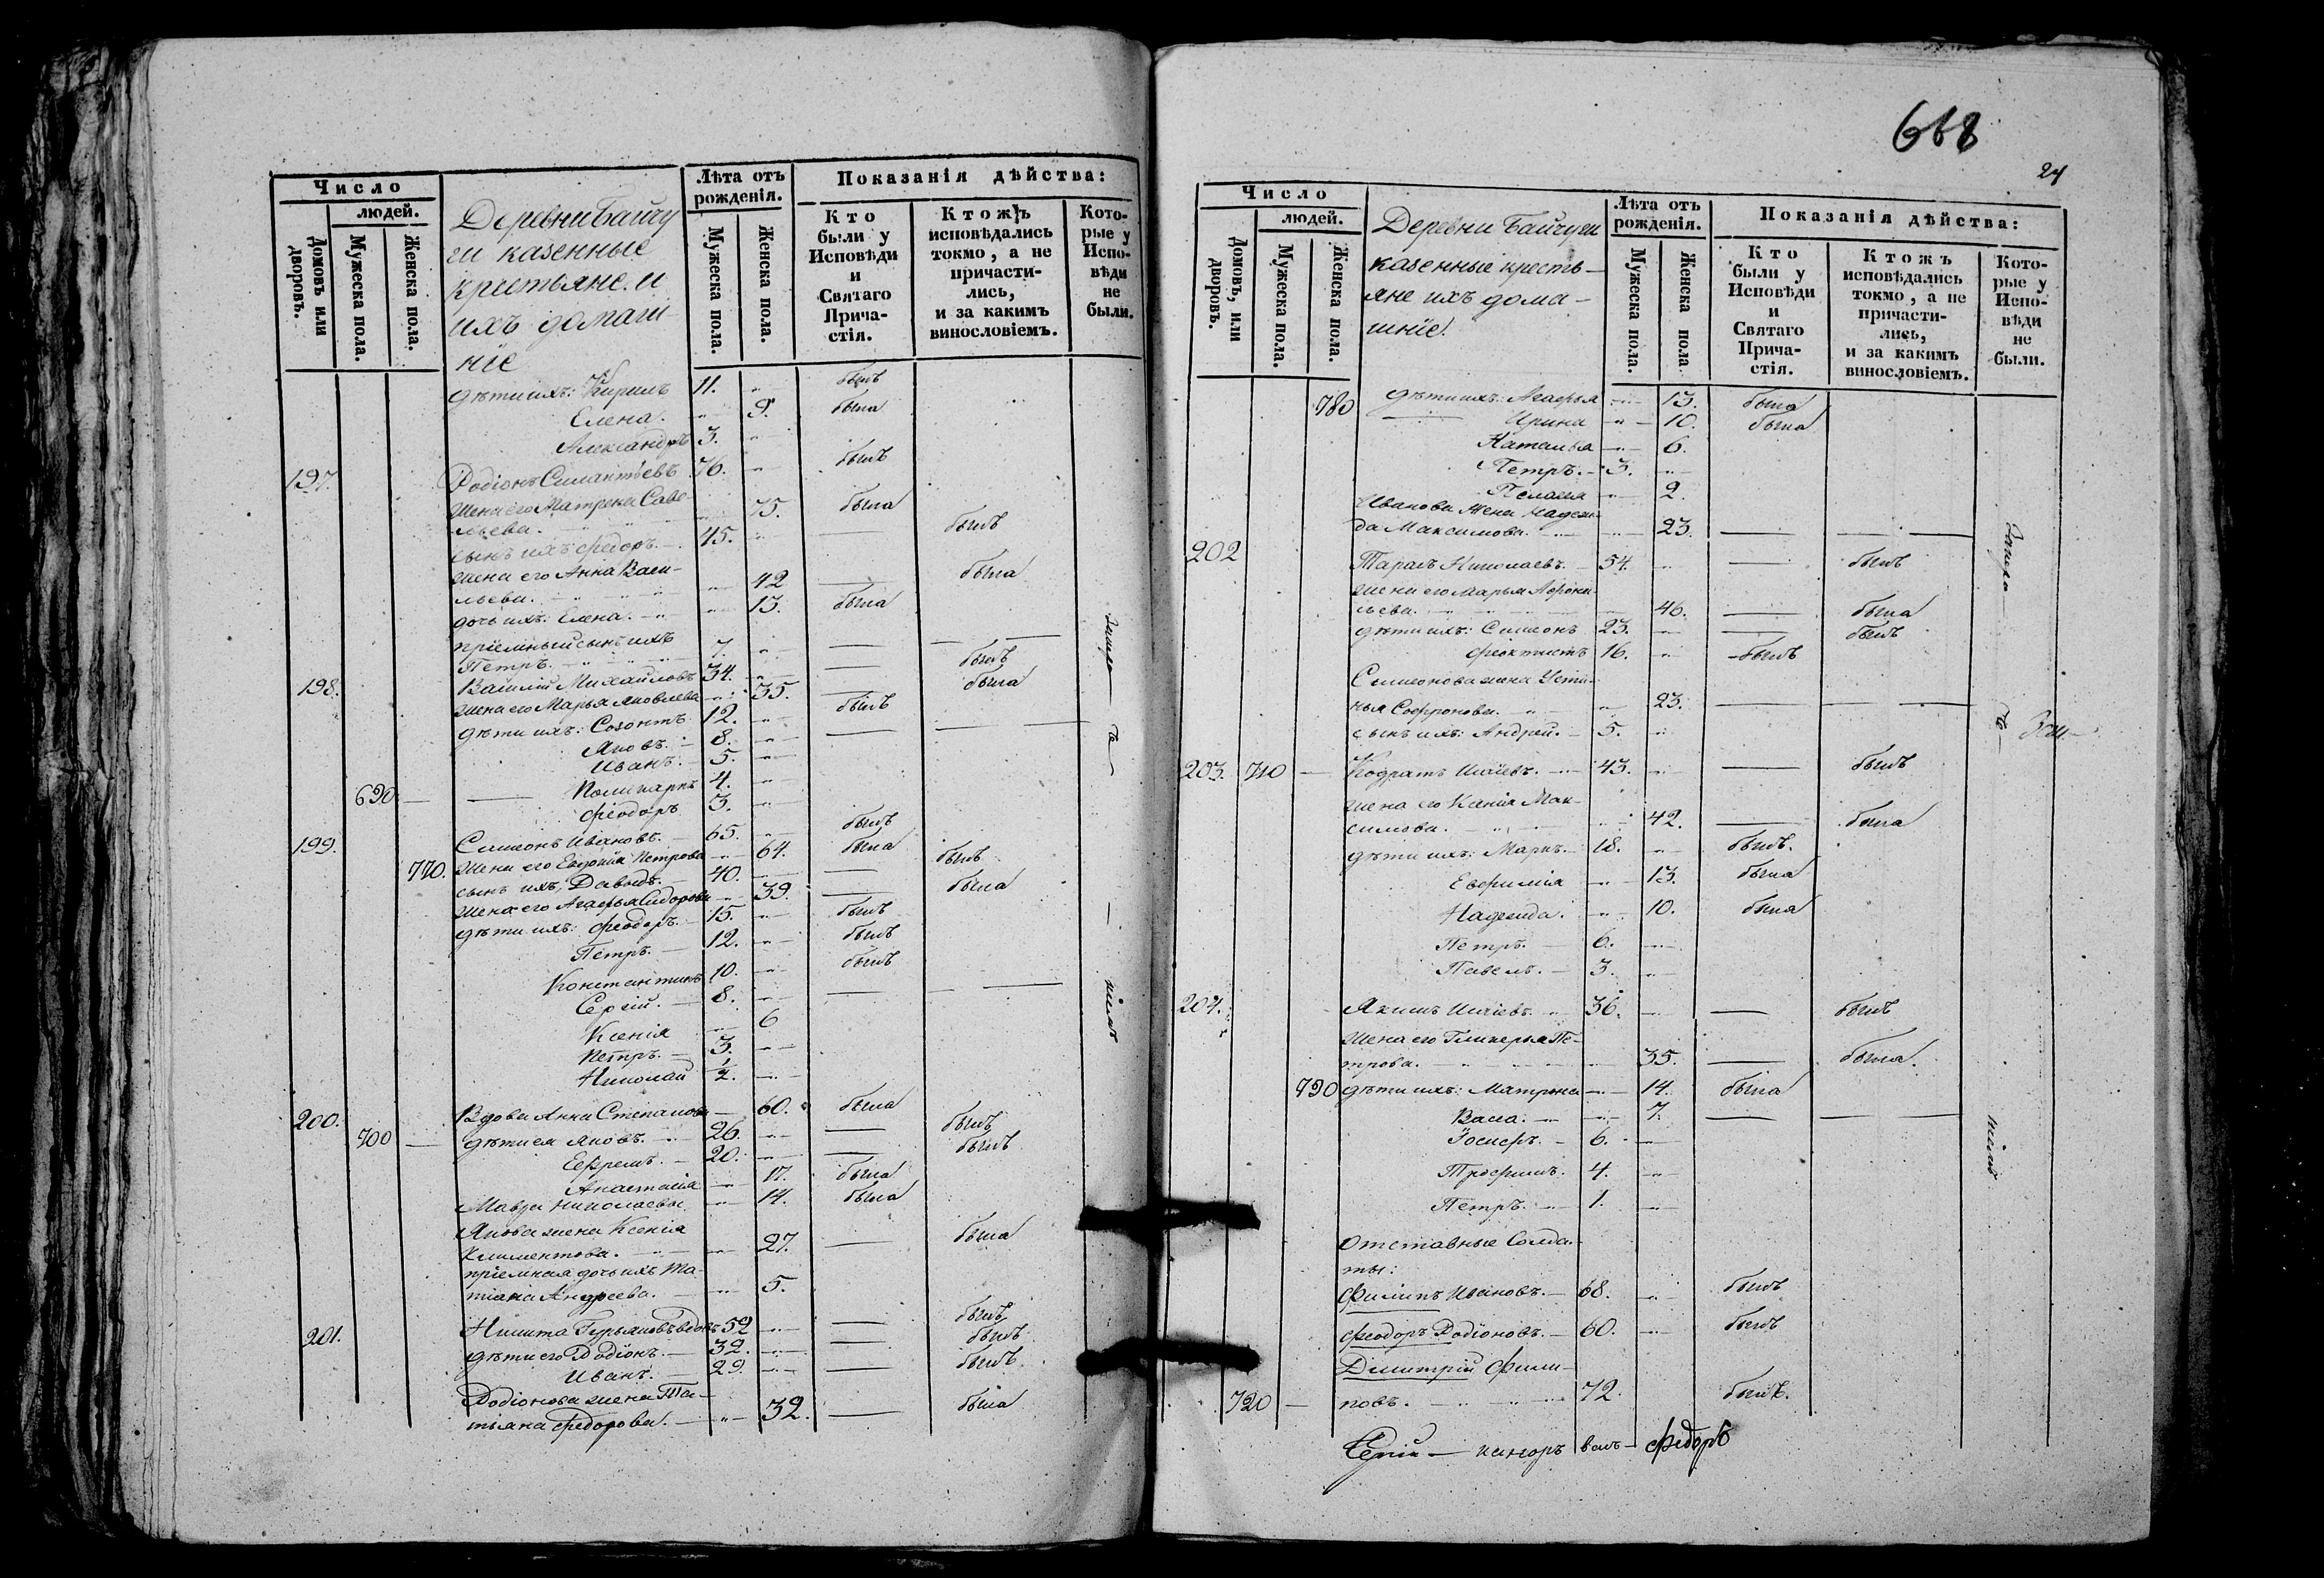 Число
людей.
Домовъ или дворовъ.
Мужеска пола.
Женска пола.
Деревни Байчу
ги казенные
крестьяне и
ихъ домаш
ніе
Лѣта отъ рожденія.
Мужеска пола.
Женска пола.
Показанія дѣйства:
Кто были у Исповѣди и Святаго Прича-стія.
Ктожъ исповѣдались токмо, а не причасти-лись, и за какимъ винословіемъ.
Кото-рые у Испо-вѣди не были.
дѣти ихъ: Кирилъ 11. былъ
Елена. 9. была
Александръ 3.
197. Родіонъ Силантьевъ 76. былъ
жена его Матрена Саве-
льева. 75. была
сынъ ихъ Федоръ. 45. былъ
жена его Анна Васи-
льева. 42 была
дочь ихъ Елена. 13. была
пріемный сынъ ихъ
Петръ. 7.
198. Василій Михайловъ 34. былъ
жена его Марья Яковлева 35. была
дѣти ихъ: Созонтъ 12. былъ
Яковъ. 8.
Иванъ. 5.
690 Поликарпъ 4.
Феодоръ 3.
199. Симеонъ Ивановъ. 65. былъ
770. жена его Евдокія Петрова 64. была
сынъ ихъ, Давыдъ. 40. былъ
жена его Агафья Сидорова 39. была
дѣти ихъ: Феодоръ. 15. былъ
Петръ. 12. былъ
Константинъ 10. былъ
Сергій. 8.
Ксенія 6
Петръ. 3.
Николай 1/2.
200. Вдова Анна Степанова 60. была
700 дѣти ея Яковъ. 26. былъ
Ефремъ. 20. былъ
Анастасія 17. была
Мавра Николаева 14. была
Якова жена Ксенія
Климентова. 27. была
пріемная дочь ихъ Та-
тіана Андреева. 5.
201. Никита Гурьяновъ вдовъ 52 былъ
дѣти его Родіонъ. 32. былъ
Иванъ. 29. былъ
Родіонова жена Та-
тьяна Федорова. 32. была
668
24
Число
людей.
Домовъ, или дворовъ.
Мужеска пола.
Женска пола.
Деревни Байчуги
казенные кресть-
яне ихъ дома-
шніе.
Лѣта отъ рожденія.
Мужеска пола.
Женска пола
Показанія дѣйства:
Кто были у Исповѣди и Святаго Прича-стія.
Ктожъ исповѣдались токмо, а не причасти-лись, и за какимъ винословіемъ.
Кото-рые у Испо-вѣди не были.
780 дѣти ихъ: Агафья 13. была
Ирина 10. была
Наталья 6.
Петръ. 3.
Пелагея 2.
Иванова жена Надеж-
да Максимова. 23.
202 Тарасъ Николаевъ. 54. былъ
жена его Марья Афона-
сьева. 46. была
дѣти ихъ: Симеонъ 23. былъ
Феоктистъ 16. былъ
Симеонова жена Усти-
нья Софронова. 23.
сынъ ихъ: Андрей. 5.
203. 710 Кодратъ Исаіевъ. 43. былъ
жена его Ксенія Мак-
симова. 42. была
дѣти ихъ: Маркъ. 18. былъ.
Евфимія 13. была
Надежда. 10. была
Петръ. 6.
Павелъ. 3.
204. Якимъ Исаіевъ. 36. былъ
жена его Гликерья Пе-
трова. 35. была.
790 дѣти ихъ: Матрона 14. была
Васса. 7.
Іосифъ. 6.
Трофимъ. 4.
Петръ. 1.
Отставные Солда-
ты:
Филипъ Ивановъ. 68. былъ
Феодоръ Родіоновъ. 60. былъ
Димитрій Фили-
720 повъ. 72 былъ.
Федоръ